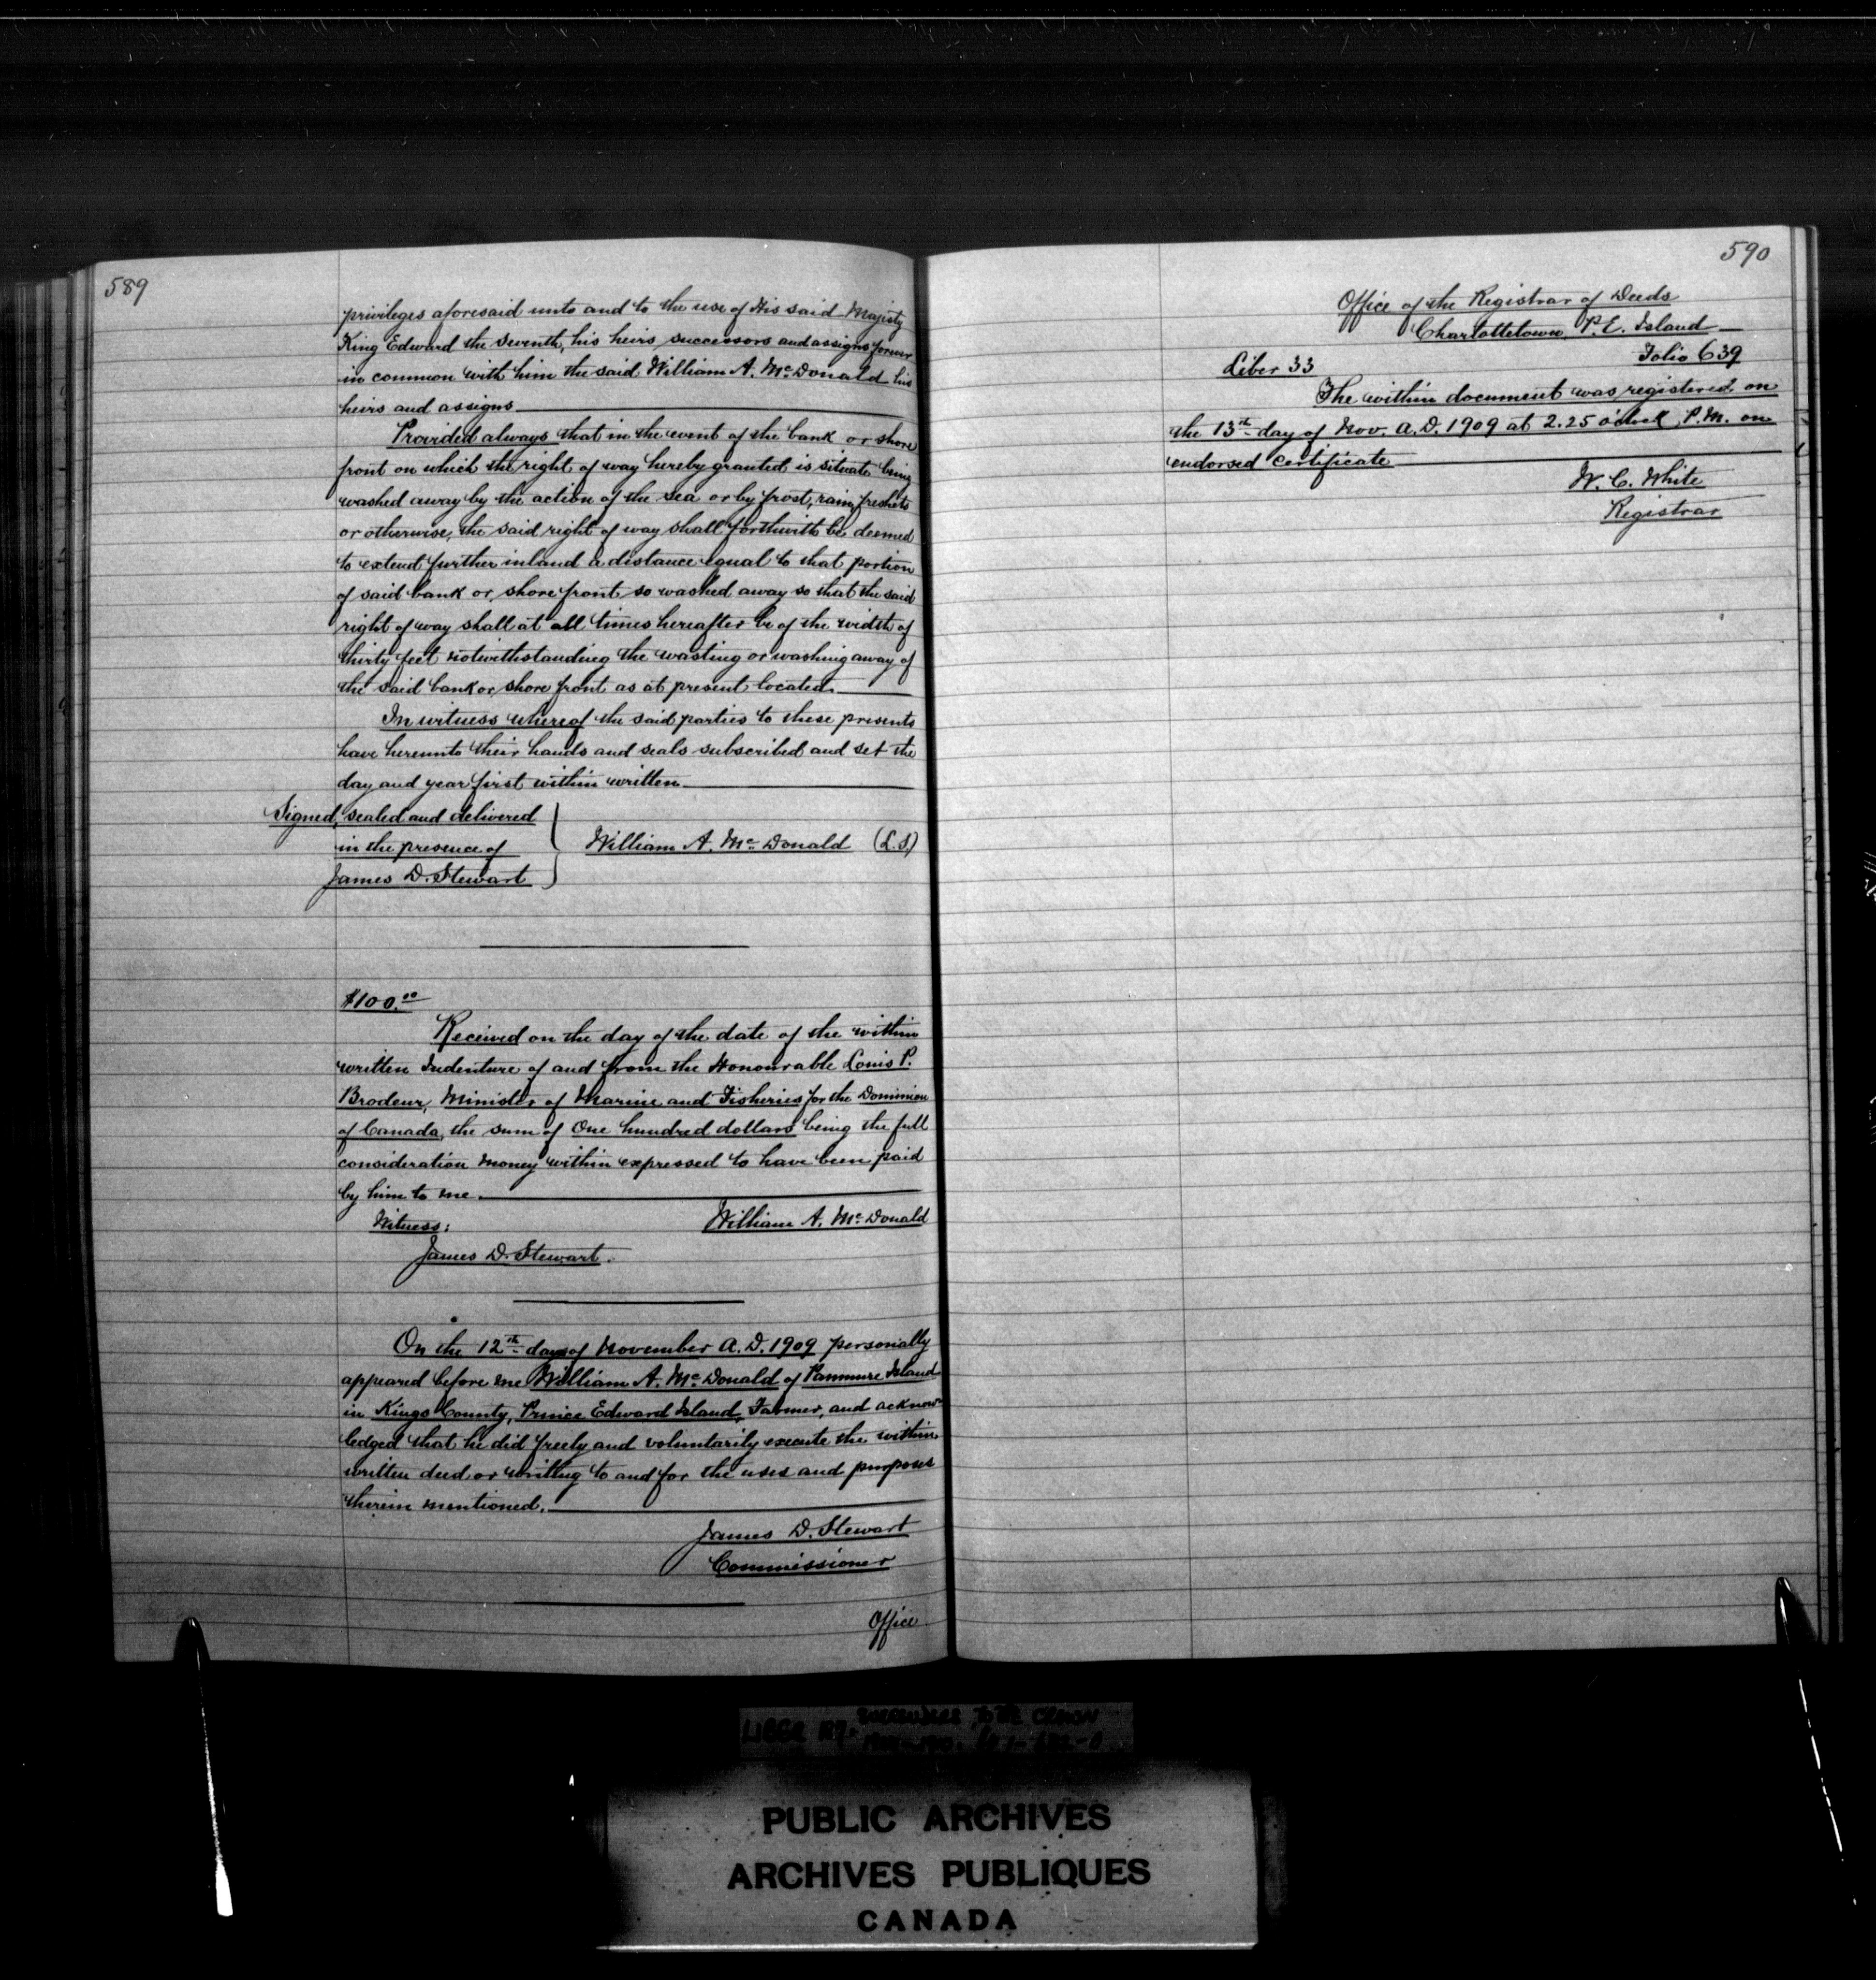 589
privileges aforesaid unto and to the use of His said Majesty
King Edward the Seventh, his heirs successors and assigns forever
in common with him the said William A. McDonald his
heirs and assigns
Provided always that in the event of the bank or shore
front on which the right of way hereby granted is situate being
washed away by the action of the sea or by frost, rain, freshets
or otherwise, the said right of way shall forthwith be deemed
to extend further inland a distance equal to that portion
of said bank or shore front so washed away so that the said
right of way shall at all times hereafter be of the width of
thirty feet notwithstanding the wasting or washing away of
the said bank or shore front as at present located.
In witness whereof the said parties to these presents
have hereunto their hands and seals subscribed and set the
day and year first within written
Signed, sealed and delivered
in the presence of
James D. Stewart
William A. McDonald (L.S.)
$100.00
Received on the day of the date of the within
written Indenture of and from the Honourable Louis P.
Brodeur, Minister of Marine and Fisheries for the Dominion
of Canada, the sum of One hundred dollars being the full
consideration money within expressed to have been paid
by him to me.
Witness: William A. McDonald
James D. Stewart.
On the 12th day of November A.D. 1909 personally
appeared before me William A. McDonald of Panmure Island
in Kings County, Prince Edward Island, Farmer, and acknow-
ledged that he did freely and voluntarily execute the within
written deed or writing to and for the uses and purposes
therein mentioned.
James D. Stewart
Commissioner
Office
590
Office of the Registrar of Deeds
Charlottetown, P.E. Island
Liber 33 Folio 639
The within document was registered on
the 13th day of Nov. A.D. 1909 at 2.25 o'clock P.M. on
endorsed certificate
W. C. White
Registrar
SURRENDERS TO THE CROWN
PUBLIC ARCHIVES
ARCHIVES PUBLIQUES
CANADA